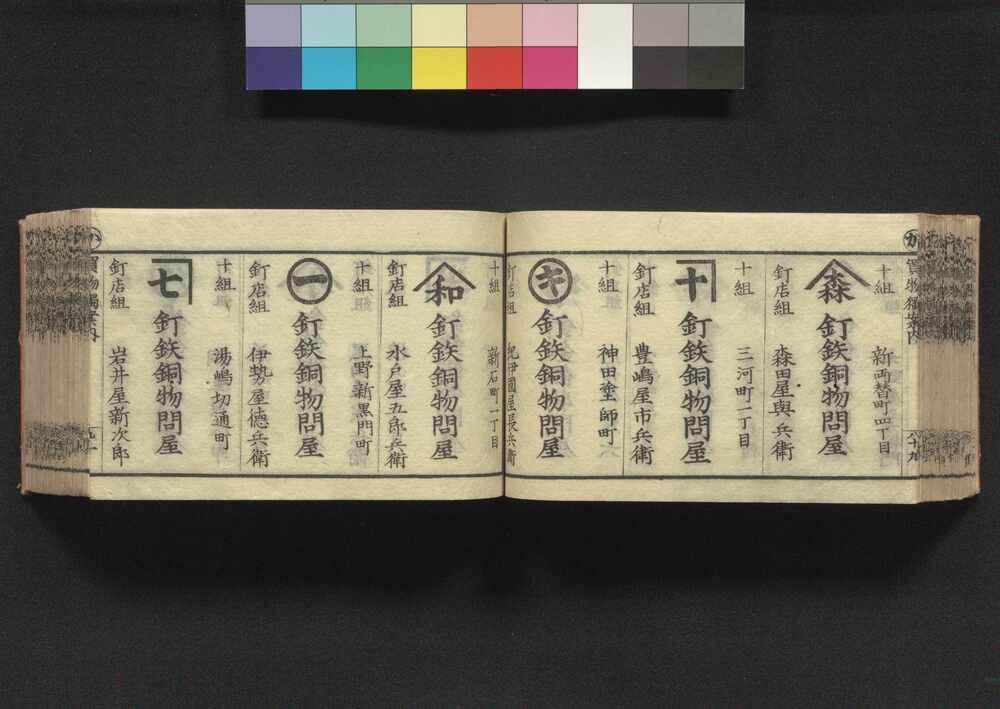 十組 新両替町四丁目
森 釘鉄銅物問屋
釘店組 森田屋與兵衛
十組 三河町一丁目
十 釘鉄銅物問屋
釘店組 豊嶋屋市兵衛
十組 神田塗師町
キ 釘鉄銅物問屋
釘店組 紀伊國屋長兵衛
十組 新石町一丁目
和 釘鉄銅物問屋
釘店組 水戸屋五郎兵衛
十組 上野新黒門町
一 釘鉄銅物問屋
釘店組 伊勢屋徳兵衛
十組 湯嶋切通町
七 釘鉄銅物問屋
釘店組 岩井屋新次郎